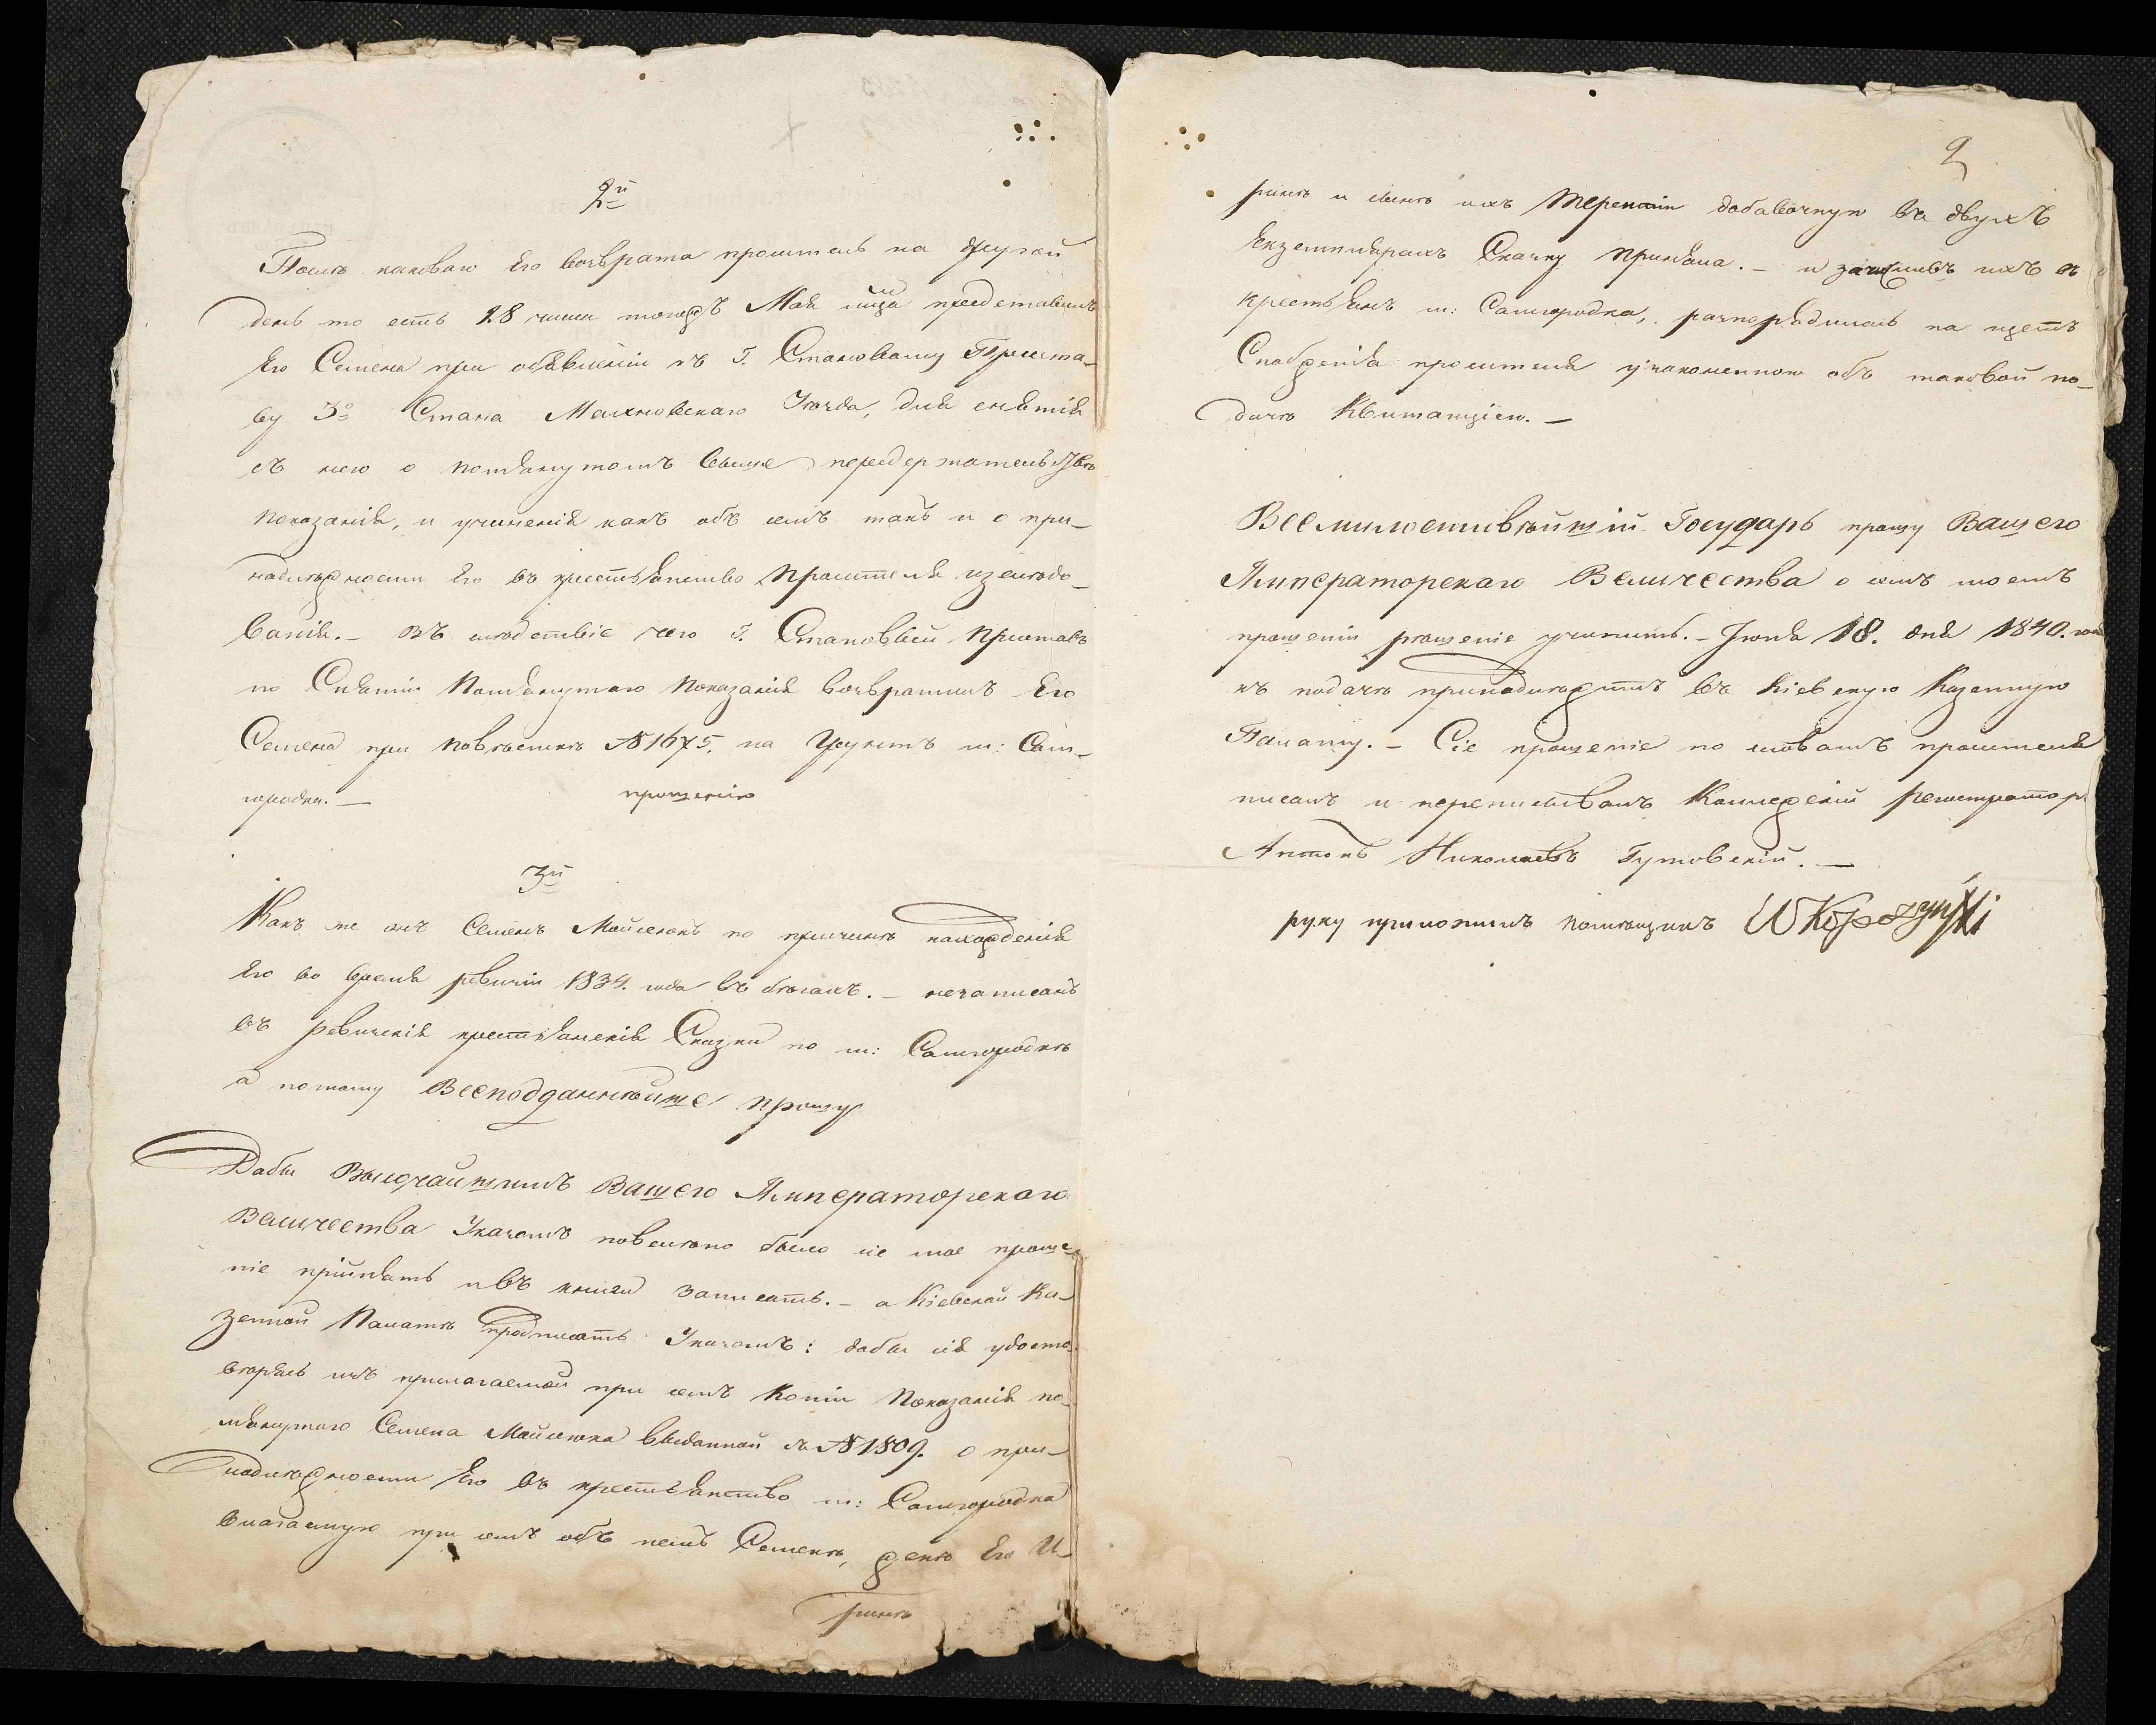 2й
Послѣ каковаго Его возврата проситель на другой
день то есть 28 числа тогожъ Мая мца представилъ
Его Семена при объявленіи къ Г. Становому Приста-
ву 3го Стана Махновскаго Уѣзда, для снятія
съ него о помянутомъ выше передержательствѣ
показанія, и учиненія какъ объ семъ такъ и о при-
надлежности Его въ крестьянство просителя изслѣдо-
ванія. – Въ слѣдствіе чего Г. Становый Приставъ
по Снятіи Помянутаго Показанія возвратилъ Его
Семена при повѣсткѣ №1675. на Грунтъ м: Сам-
городка. –
прошенію
3й
Какъ же онъ Семенъ Майсеюкъ по причинѣ нахожденія
Его во время ревизіи 1834. года въ бѣгахъ. – незаписанъ
въ ревизскія крестьянскія Сказки по м: Самгородкѣ
а потому Всеподданнѣйше прошу
Дабы Высочайшимъ Вашего Императорскаго
Величества Указомъ повелѣно было сіе мое проше-
ніе прійнять и въ книги записать. – а Кіевской Ка-
зенной Палатѣ предписать Указомъ: дабы сія удосто-
вѣрясь изъ прилагаемой при семъ Копіи Показанія по-
мянутаго Семена Майсеюка выданной за №1809. о при-
надлежности Его въ крестьянство м: Самгородка
влагаемую при семъ объ немъ Семенѣ, женѣ Его И-
ринѣ
2
ринѣ и сынѣ ихъ Терентіи добавочную въ двухъ
Екземплярахъ Скаску приняла. – и зачисливъ ихъ въ
крестьянъ м: Самгородка, распорядилась на щетъ
Снабженія просителя узаконенною объ таковой по-
дачѣ Квитанціею. –
Всемилостивѣйшій Государь прошу Вашего
Императорскаго Величества о семъ моемъ
прошеніи рѣшеніе учинить. – Іюня 18. дня 1840. года
къ подачѣ принадлежитъ въ Кіевскую Казенную
Палату. – Сіе прошеніе по словамъ просителя
писалъ и переписывалъ Коллежскій регистраторъ
Антонъ Николаевъ Гутовскій. –
руку приложилъ помѣщикъ